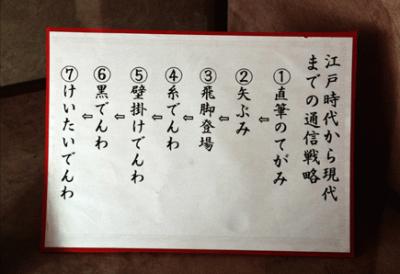 江戸時代から現代
までの通信戦略
①直筆のてがみ
⇦
②矢ぶみ
⇦
③飛脚登場
⇦
④糸でんわ
⇦
⑤壁掛けでんわ
⇦
⑥黒でんわ
⇦
⑦けいたいでんわ